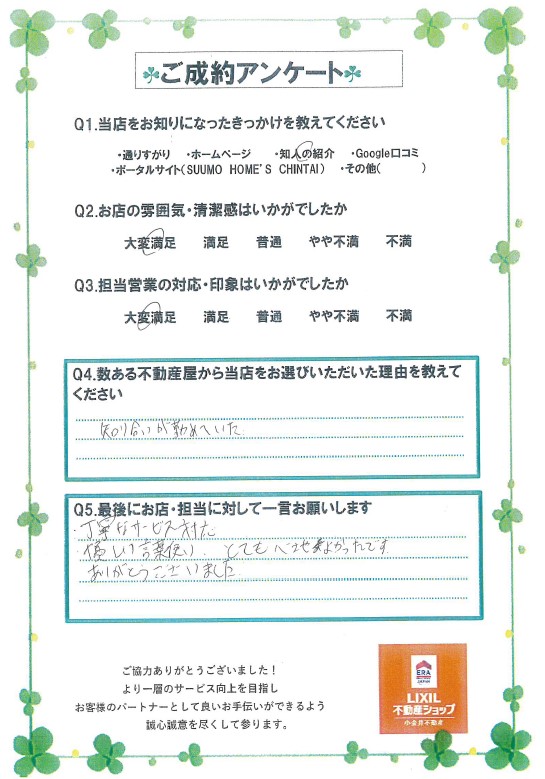 ご成約アンケート
Q1.当店をお知りになったきっかけを教えてください
・通りすがり ・ホームページ ・知人の紹介 ・Google口コミ
・ポータルサイト(SUUMO HOME'S CHINTAI) ・その他( )
Q2.お店の雰囲気・清潔感はいかがでしたか
大変満足 満足 普通 やや不満 不満
Q3.担当営業の対応・印象はいかがでしたか
大変満足 満足 普通 やや不満 不満
Q4.数ある不動産屋から当店をお選びいただいた理由を教えて
ください
知り合いが勤めていた
Q5.最後にお店・担当に対して一言お願いします
・丁寧なサービス対応
・優しい言葉使い とても よかったです
ありがとうございました
ご協力ありがとうございました！
より一層のサービス向上を目指し
お客様のパートナーとして良いお手伝いができるよう
誠心誠意を尽くして参ります。
ERA
JAPAN
LIXIL
不動産ショップ
小金井不動産